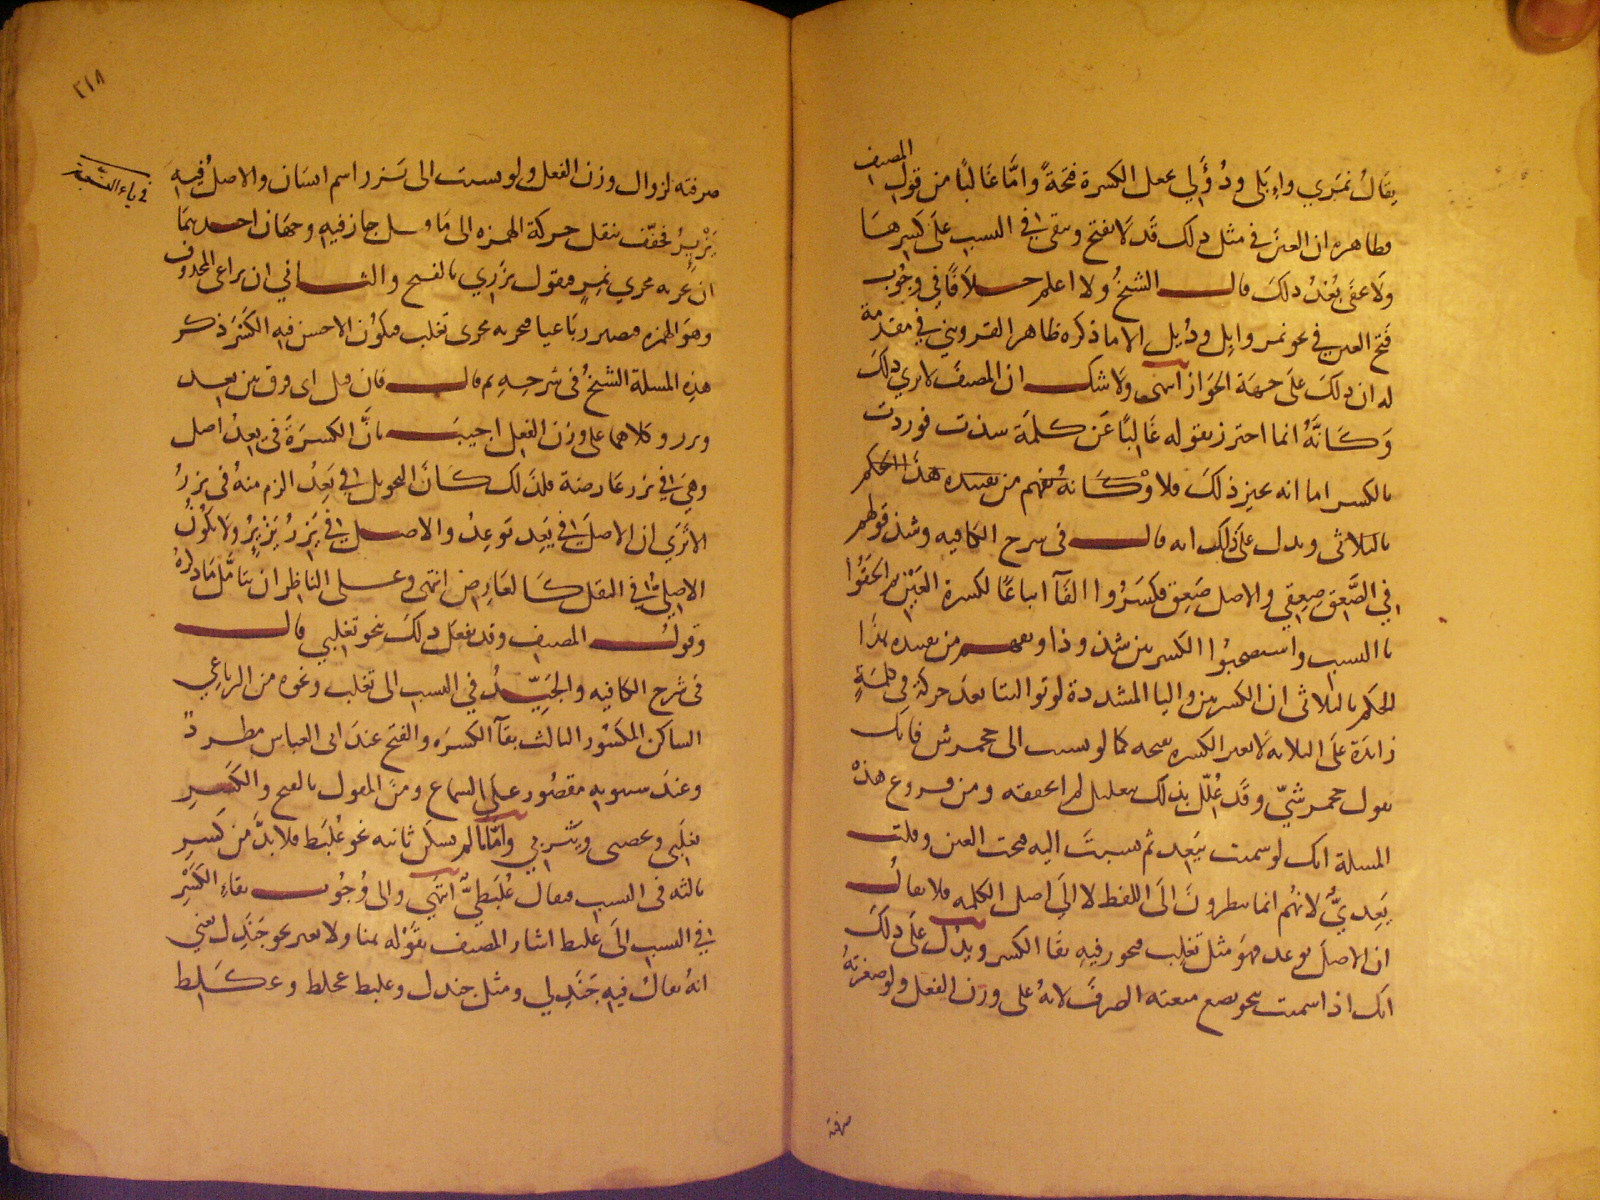 يقال نمري وابلي ودؤلي بجعل الكسرة فتحة واما غالبا من قول المصنف
فظاهره ان العين في مثل ذلك قد لا يفتح ويبقى في النسب على كسرها
ولا يخفى بعد ذلك قال الشيخ ولا اعلم خلافا في وجوب
فتح العين في نحو نمر وابل ودئل الا ما ذكره طاهر القزويني في مقدمة
له ان ذلك على جهة الجواز انتهى ولا شك ان المصنف لا يرى ذلك
وكانه انما احترز بقوله غالبا عن كلمة شذت فوردت
بالكسر اما انه يجيز ذلك فلا وكانه يفهم من تقييده هذا الحكم
بالثلاثي ويدل على ذلك انه قال في شرح الكافيه وشذ قولهم
في الصعق صعقي والاصل صعق فكسروا الفا اتباعا لكسرة العين ثم الحقوا
يا النسب واستصحبوا الكسرتين شذوذا ويفهم من تقييده هذا
الحكم بالثلاثي ان الكسرتين واليا المشددة لو توالتا بعد حركة في كلمة
زائدة على الثلاثة لا تغير الكسرة فتحة كما لو نسبت الى جحمرش فانك
تقول جحمرشي وقد علل بذلك بتعليل لم احققه ومن فروع هذه
المسلة انك لو سميت بيعد ثم نسبت اليه فتحت العين وقلت
يعدي لانهم انما ينظرون الى اللفظ لا الى اصل الكلمه فلا يقال
ان الاصل يوعد فهو مثل تغلب فيجوز فيه بقا الكسر ويدل على ذلك
انك اذا سميت بنحو يضع منعته الصرف لانه على وزن الفعل ولو صغرته
صرفته
٢١٨
في ياء النسبة
صرفته لزوال وزن الفعل ولو نسبت الى يزر اسم انسان والاصل فيه
يزئر فخفف بنقل حركة الهمزه الى ما قبل جاز فيه وجهان احدهما
ان تجريه مجرى نمر فتقول يزري بالفتح والثاني ان يراعى المحذوف
وهو الهمزه فيصير رباعيا فتجريه مجرى تغلب فيكون الاحسن فيه الكسر ذكر
هذه المسلة الشيخ في شرحه ثم قال فان قيل اي فرق بين يعد
ويزر وكلاهما على وزن الفعل اجيب بان الكسرة في يعد اصل
وهي في يزر عارضة فلذلك كان التحويل في يعد الزم منه في يزر
الا ترى ان الاصل في يعد توعد والاصل في يزر يزئر ولا يكون
الاصلي في النقل كالعارض انتهى وعلى الناظر ان يتامل ما ذكره
وقول المصنف وقد يفعل ذلك بنحو تغلبي قال
في شرح الكافيه والجيد في النسب الى تغلب ونحوه من الرباعي
الساكن المكسور الثالث بقا الكسره والفتح عند ابي العباس مطرد
وعند سيبويه مقصور على السماع ومن المقول بالفتح والكسر
تغلبي ويحصبي ويثربي واما ما لم يسكن ثانيه نحو علبط فلا بد من كسر
ثالثه في النسب فيقال علبطي انتهى والى وجوب بقاء الكسر
في النسب الى علبط اشار المصنف بقوله هنا ولا يغير نحو جندل يعني
انه يقال فيه جندلي ومثل جندل وعلبط عجلط وعكلط